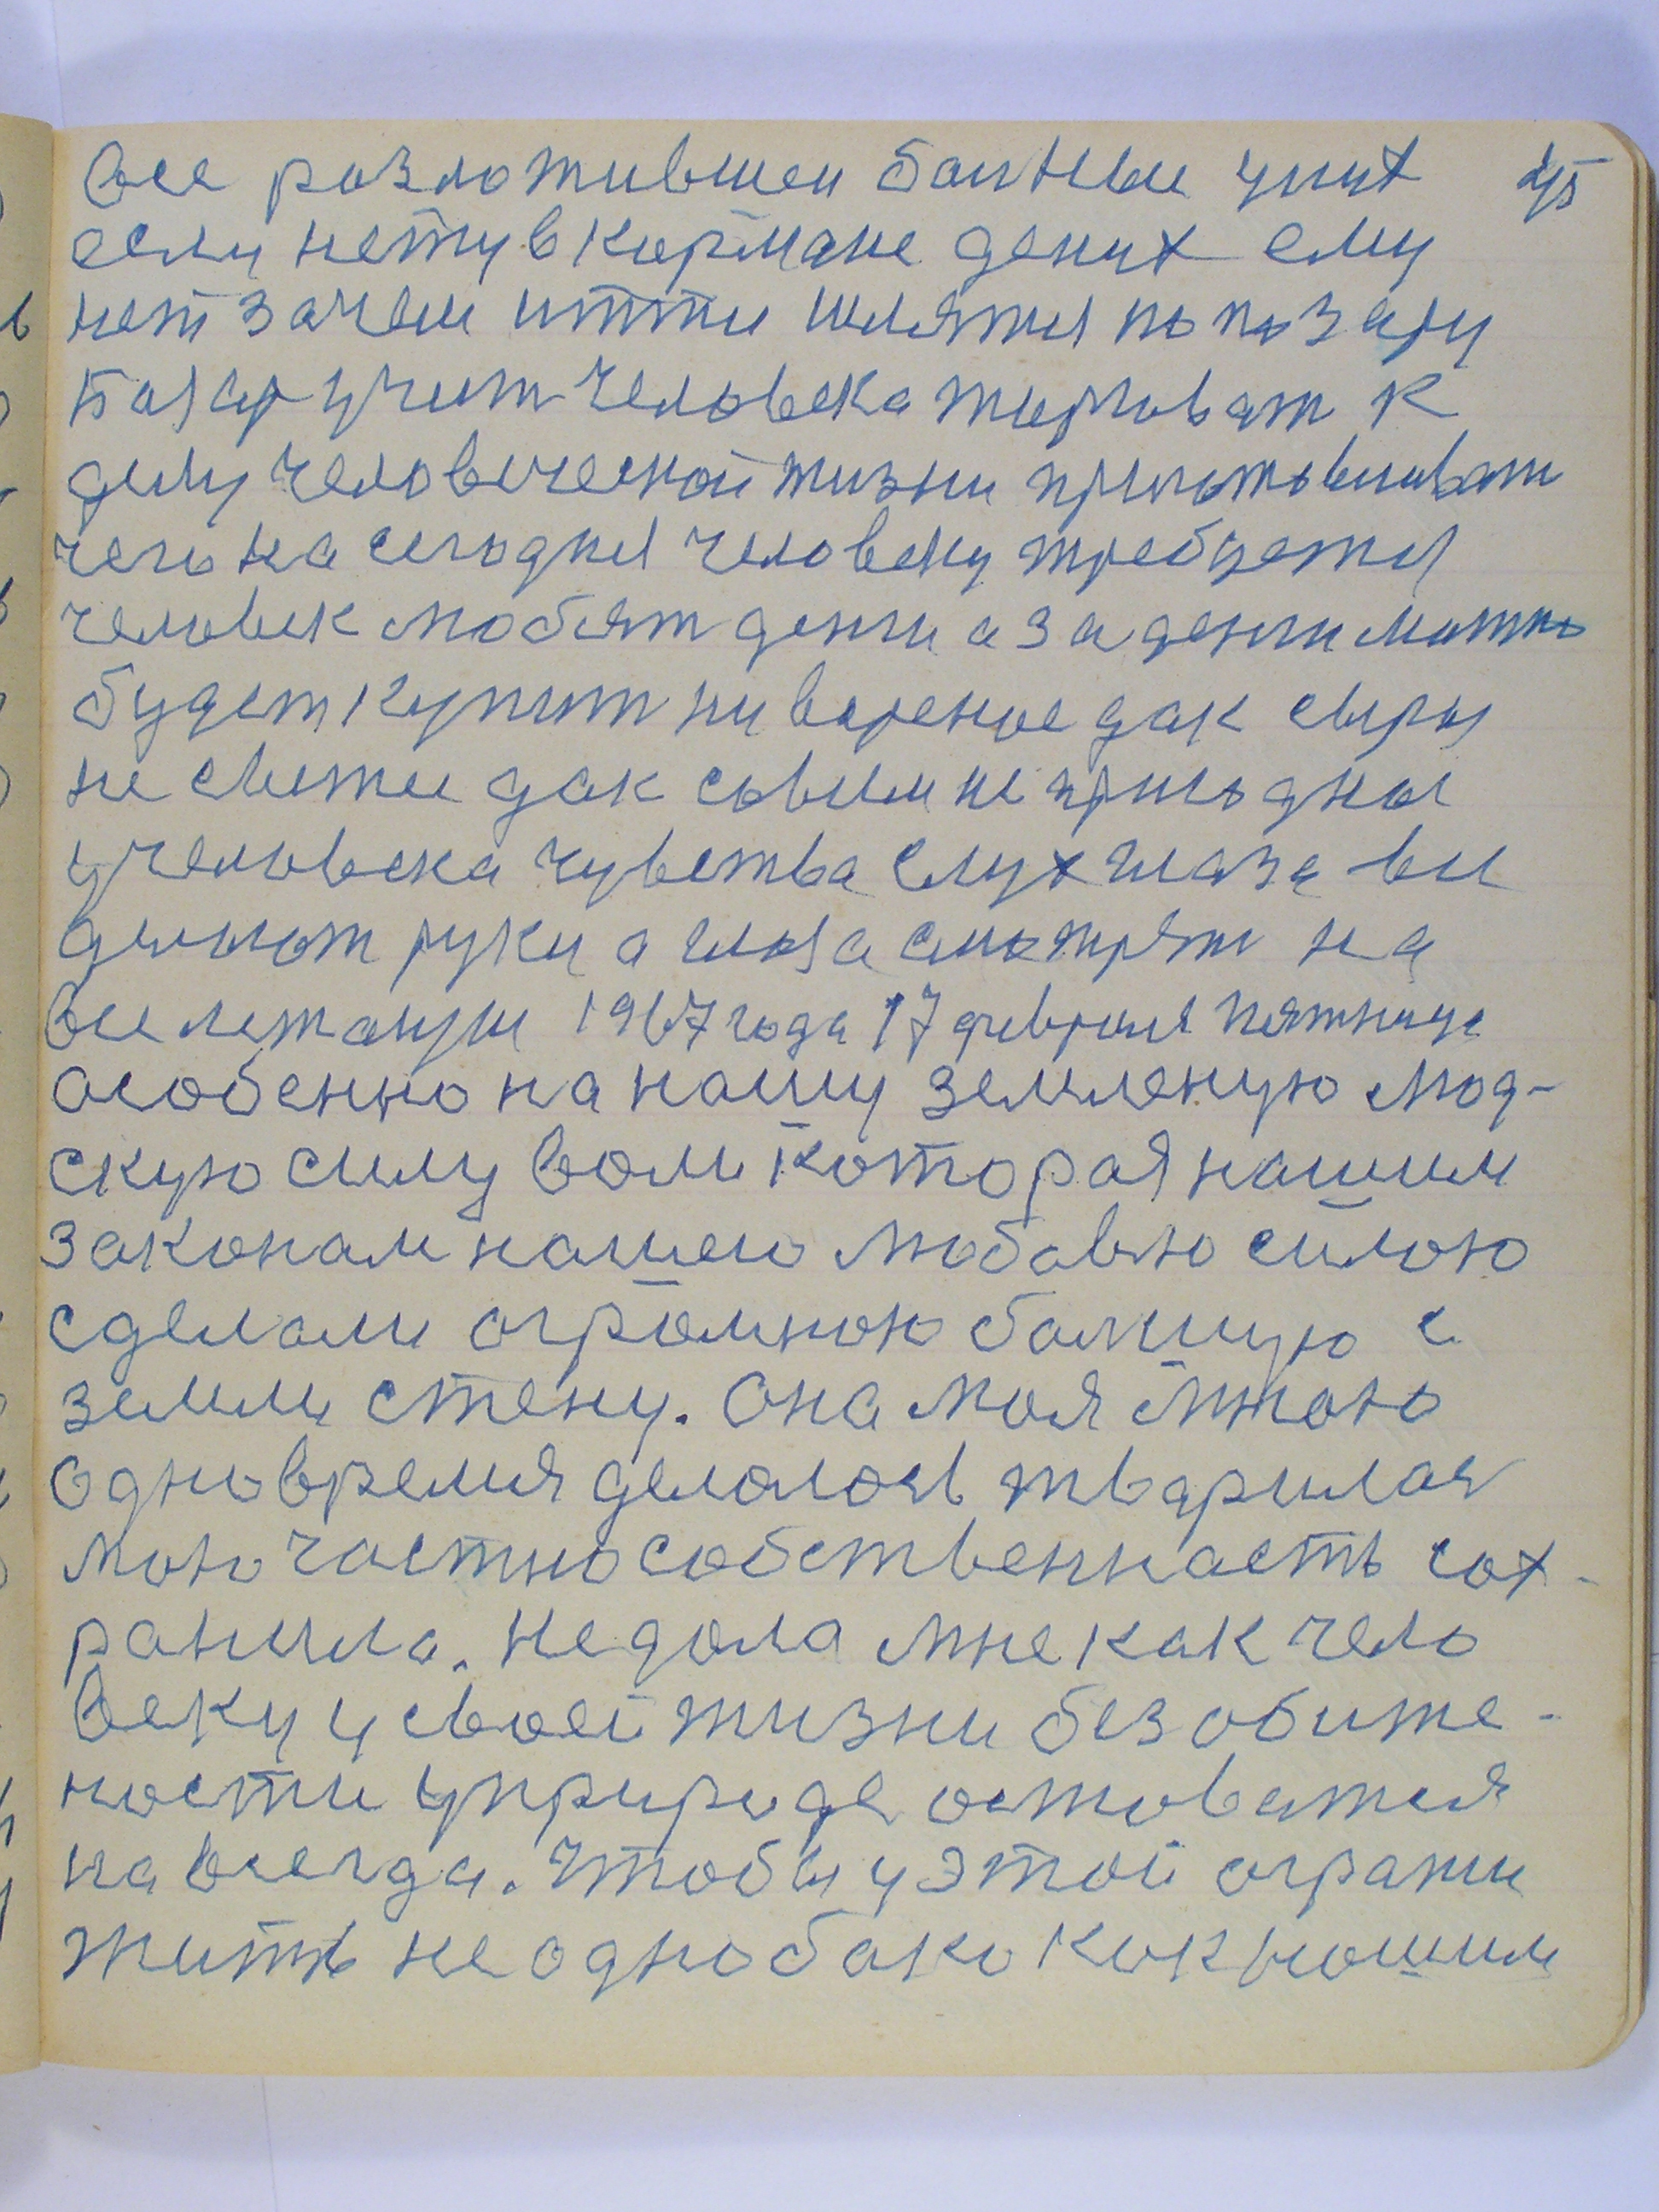 все разложившеи баитные уних 45
если нету в кормане дених ему
нет зачем итти шлятся по позару
базар учит человека торговат к
делу человеческой жизни приготовливат
чего на сегодня человеку требуется
человек любят денги а за денги можно
будет купит ни вареные дак сыры
не свежие дак совсем не пригодны
у человека чувства слух глаза все
делают руки а глаза смотрят на
все лежащи 1967 года 17 февраля пятница
особенно на нашу земленую люд-
скую силу воли которая нашим
законам нашею любовью силою
сделали огромною болшую с
земли стену. Она моя
одно время делалось творилася
мою частно собственность сох-
ранила. Не дала мне как чело
веку у своей жизни без обиже-
ности у природе оставатся
на всегда. Чтобы у этой огражи
жить не однобако как нашим